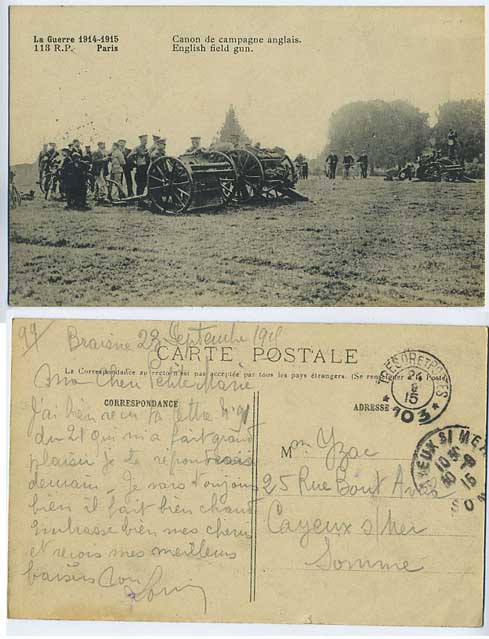 La Guerre 1914-1915
118 R.P. Paris
Canon de campagne anglais.
English field gun.
99/ Braisne 22 Septembre 191
CARTE POSTALE
La Correspondance au recto n'est pas acceptée par tous les pays étrangers. (Se renseigner à la Poste)
CORRESPONDANCE
ADRESSE
Mon cher Petite Marie
J'ai bien reçu ta lettre N° 91
du 21 qui m'a fait grand
plaisir je te répondrais
demain. Je vais toujours
bien il fait bien chaud
Embrasse bien mes chers
et reçois mes meilleurs
baisers Ton
Louis
TRESOR ET POSTES
24
15
* 103 *
M Yzac
25 Rue Bout
Cayeux s/Mer
Somme
CAYEUX S/ MER
10
15
SOM